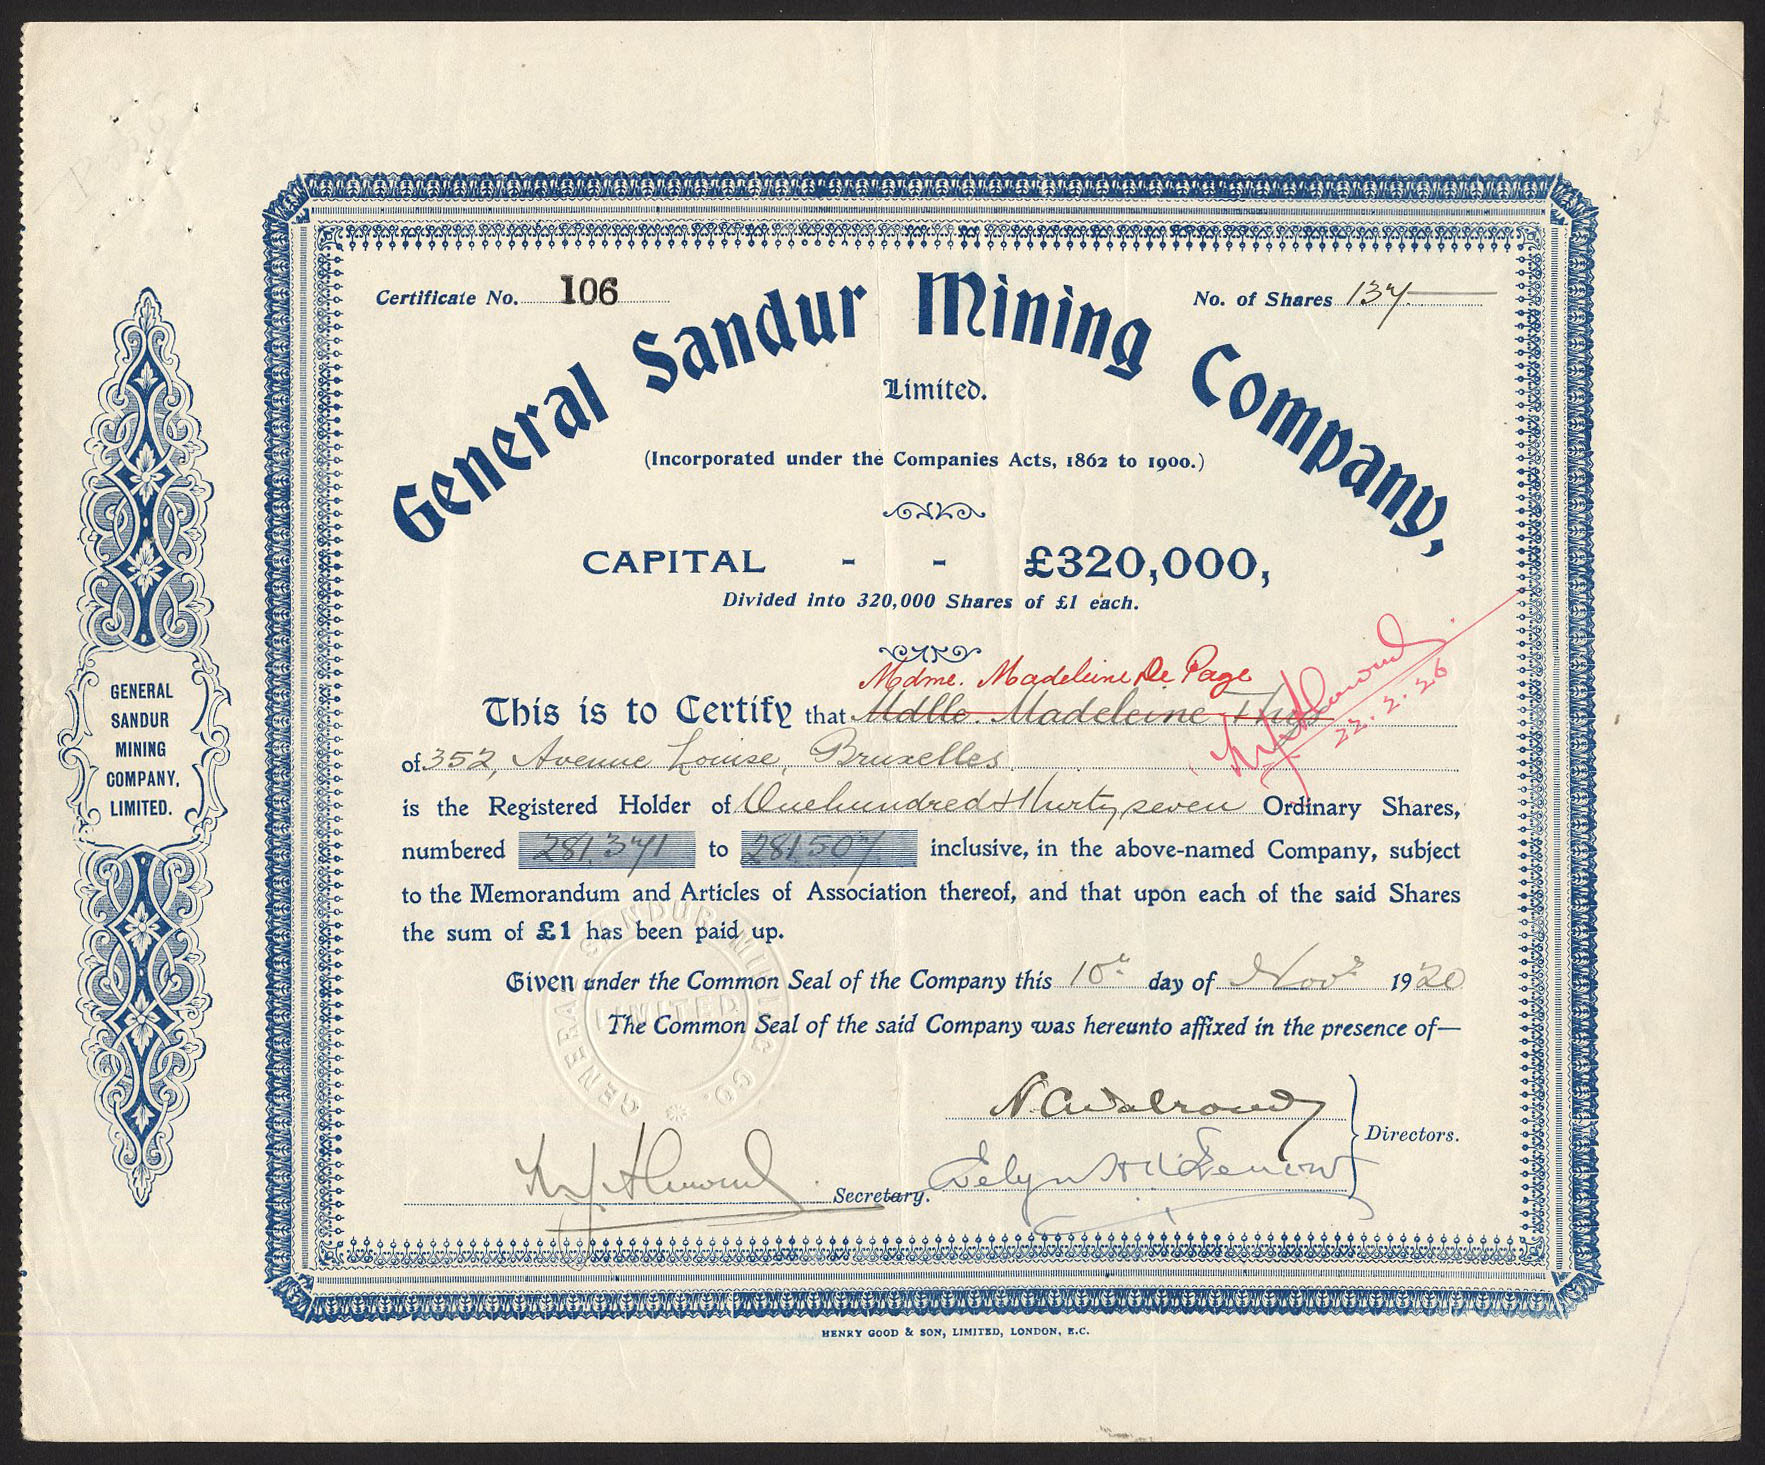 Certificate No. 106
No. of Shares 137
General Sandur Mining Company,
Limited.
(Incorporated under the Companies Acts, 1862 to 1900.)
CAPITAL - - £320,000,
Divided into 320,000 Shares of £1 each.
Mdme. Madeleine De Page
This is to Certify that Mdlle. Madeleine Thys
22.2.26
of 352, Avenue Louise, Bruxelles
is the Registered Holder of Onehundred & thirty seven Ordinary Shares,
numbered 281.371 to 281507 inclusive, in the above-named Company, subject
to the Memorandum and Articles of Association thereof, and that upon each of the said Shares
the sum of £1 has been paid up.
Given under the Common Seal of the Company this 10th day of Novr 1920
The Common Seal of the said Company was hereunto affixed in the presence of—
Directors.
Secretary.
GENERAL SANDUR MINING CO.
LIMITED
GENERAL
SANDUR
MINING
COMPANY,
LIMITED.
HENRY GOOD & SON, LIMITED, LONDON, E.C.